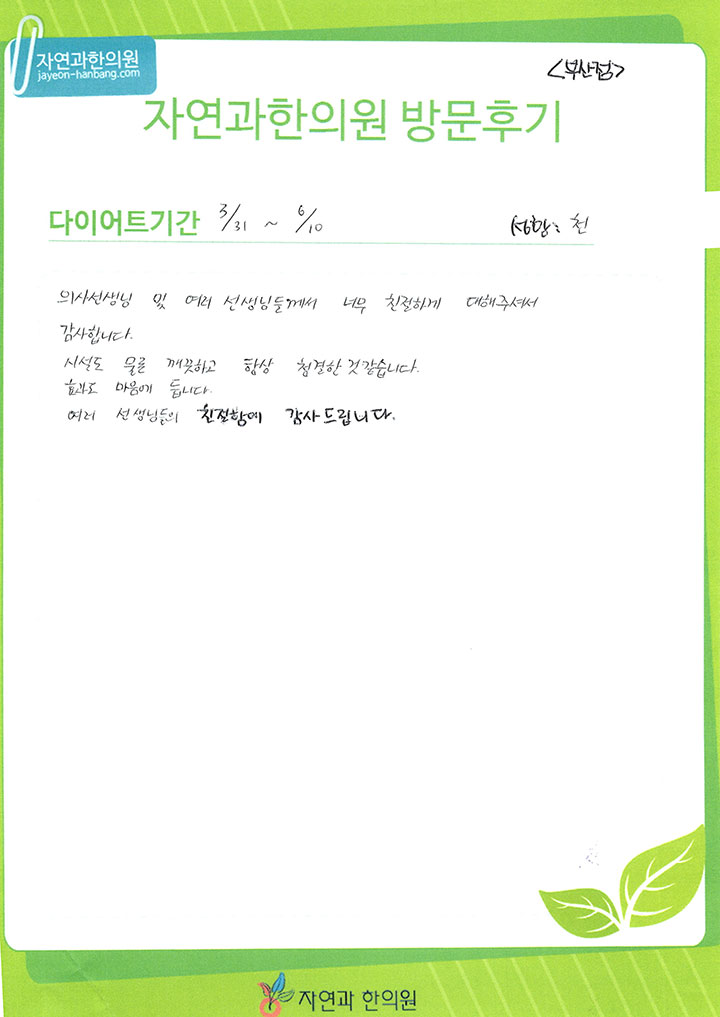 자연과한의원
jayeon-hanbang.com
<부산점>
자연과한의원 방문후기
다이어트기간 3/31 ~ 6/10 천
의사선생님 및 여러 선생님들께서 너무 친절하게 대해주셔서
감사합니다.
시설도 물론 깨끗하고 항상 청결한 것 같습니다.
효과도 마음에 듭니다.
여러 선생님들의 친절함에 감사드립니다.
자연과 한의원